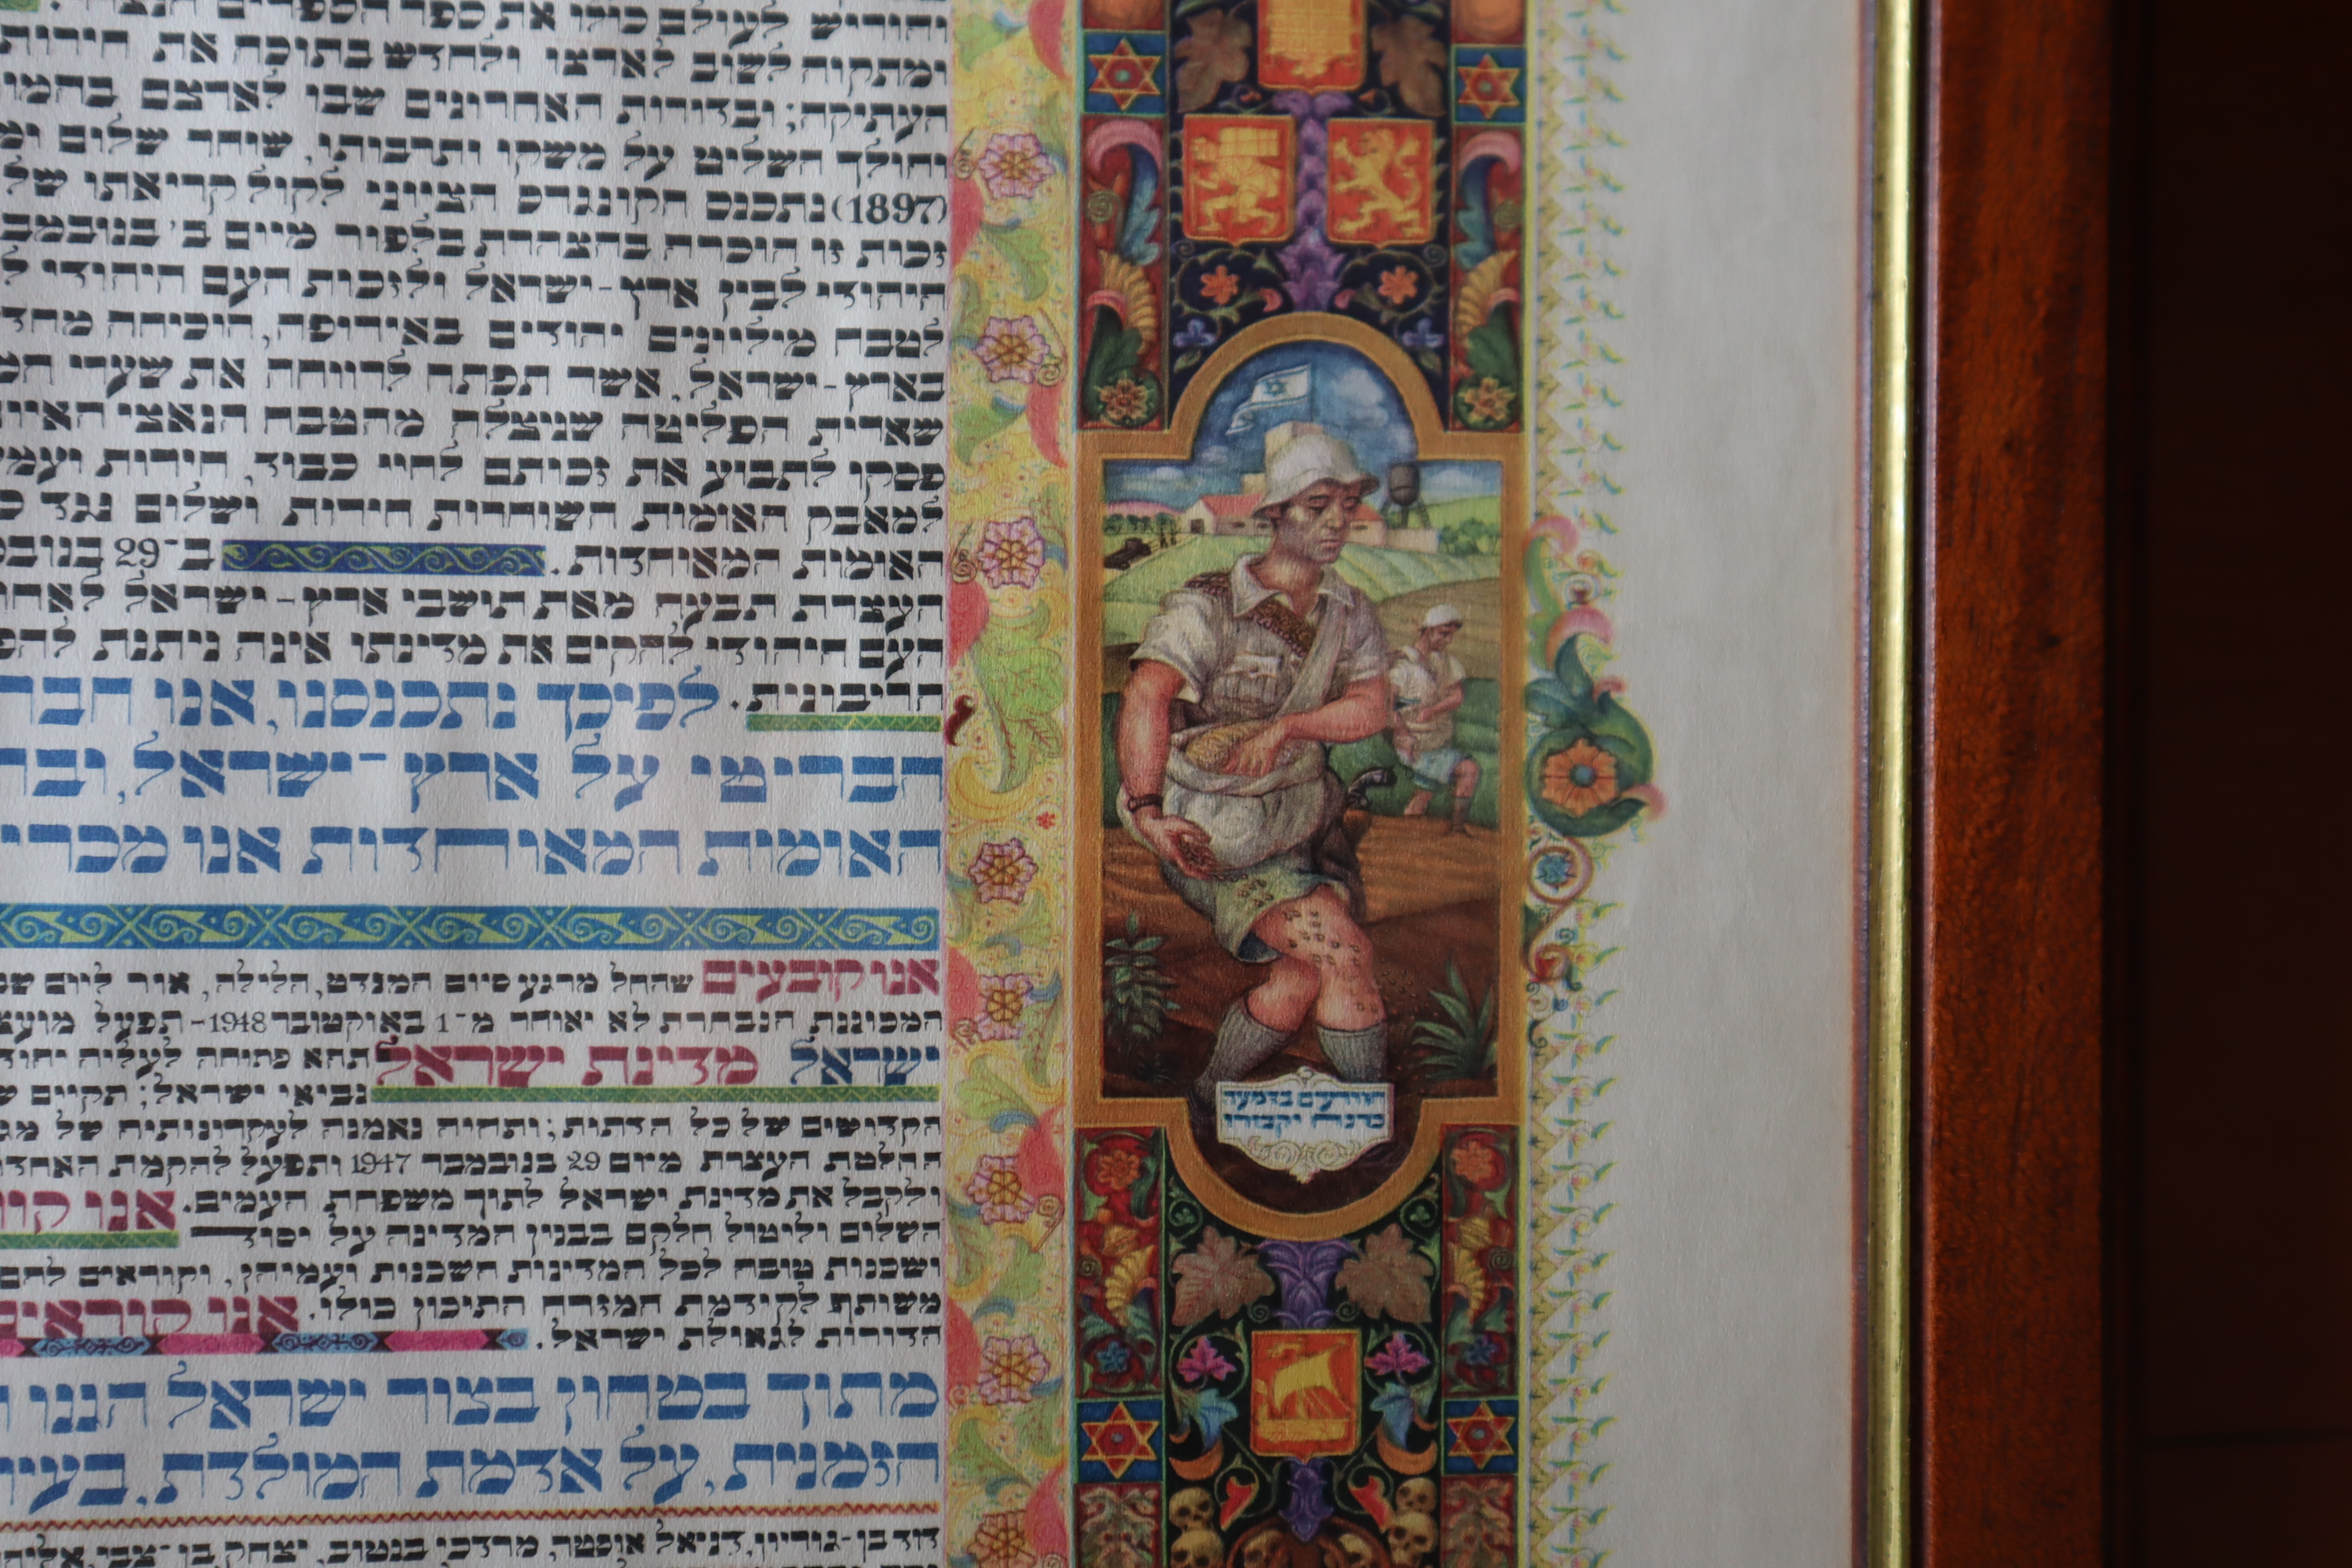 והוריש לעולם כולו את ספר הספרים הנצחי.
ומתקוה לשוב לארצו ולחדש בתוכה את חירות
העתיקה; ובדורות האחרונים שבו לארצם בהמו
והולך השליט על משקו ותרבותו, שוחר שלום
(1897) נתכנס הקונגרס הציוני לקול קריאתו של
זכות זו הוכרה בהצהרת בלפור מיום ב' בנובמב
היהודי לבין ארץ-ישראל ולזכות העם היהודי ל
לטבח מיליונים יהודים באירופה, הוכיחה מחד
בארץ-ישראל, אשר תפתח לרווחה את שערי המ
שארית הפליטה שניצלה מהטבח הנאצי האיו
פסקו לתבוע את זכותם לחיי כבוד, חירות ועמ
למאבק האומות השוחרות חירות ושלום נגד כ
האומות המאוחדות. ב־29 בנובמ
העצרת תבעה מאת תושבי ארץ-ישראל לאחו
העם היהודי להקים את מדינתו אינה ניתנת להפ
הריבונית. לפיכך נתכנסנו, אנו חבר
הבריטי על ארץ־ישראל, ובר
האומות המאוחדות אנו מכרי
אנו קובעים שהחל מרגע סיום המנדט, הלילה, אור ליום שב
המכוננת הנבחרת לא יאוחר מ־1 באוקטובר 1948- תפעל מועצ
ישראל מדינת ישראל תהא פתוחה לעליה יהוד
נביאי ישראל; תקיים ש
הקדושים של כל הדתות; ותהיה נאמנה לעקרונותיה של מג
החלטת העצרת מיום 29 בנובמבר 1947 ותפעל להקמת האחדו
ולקבל את מדינת ישראל לתוך משפחת העמים. אנו קור
השלום וליטול חלקם בבנין המדינה על יסוד
ושכנות טובה לכל המדינות השכנות ועמיהן, וקוראים להם
משותף לקידמת המזרח התיכון כולו. אנו קוראים
הדורות לגאולת ישראל.
מתוך בטחון בצור ישראל הננו ח
הזמנית, על אדמת המולדת, בעיר
דוד בן-גוריון, דניאל אוסטר, מרדכי בנטוב, יצחק בן־צבי, אליה
הזורעים בדמעה
ברנה יקצורו